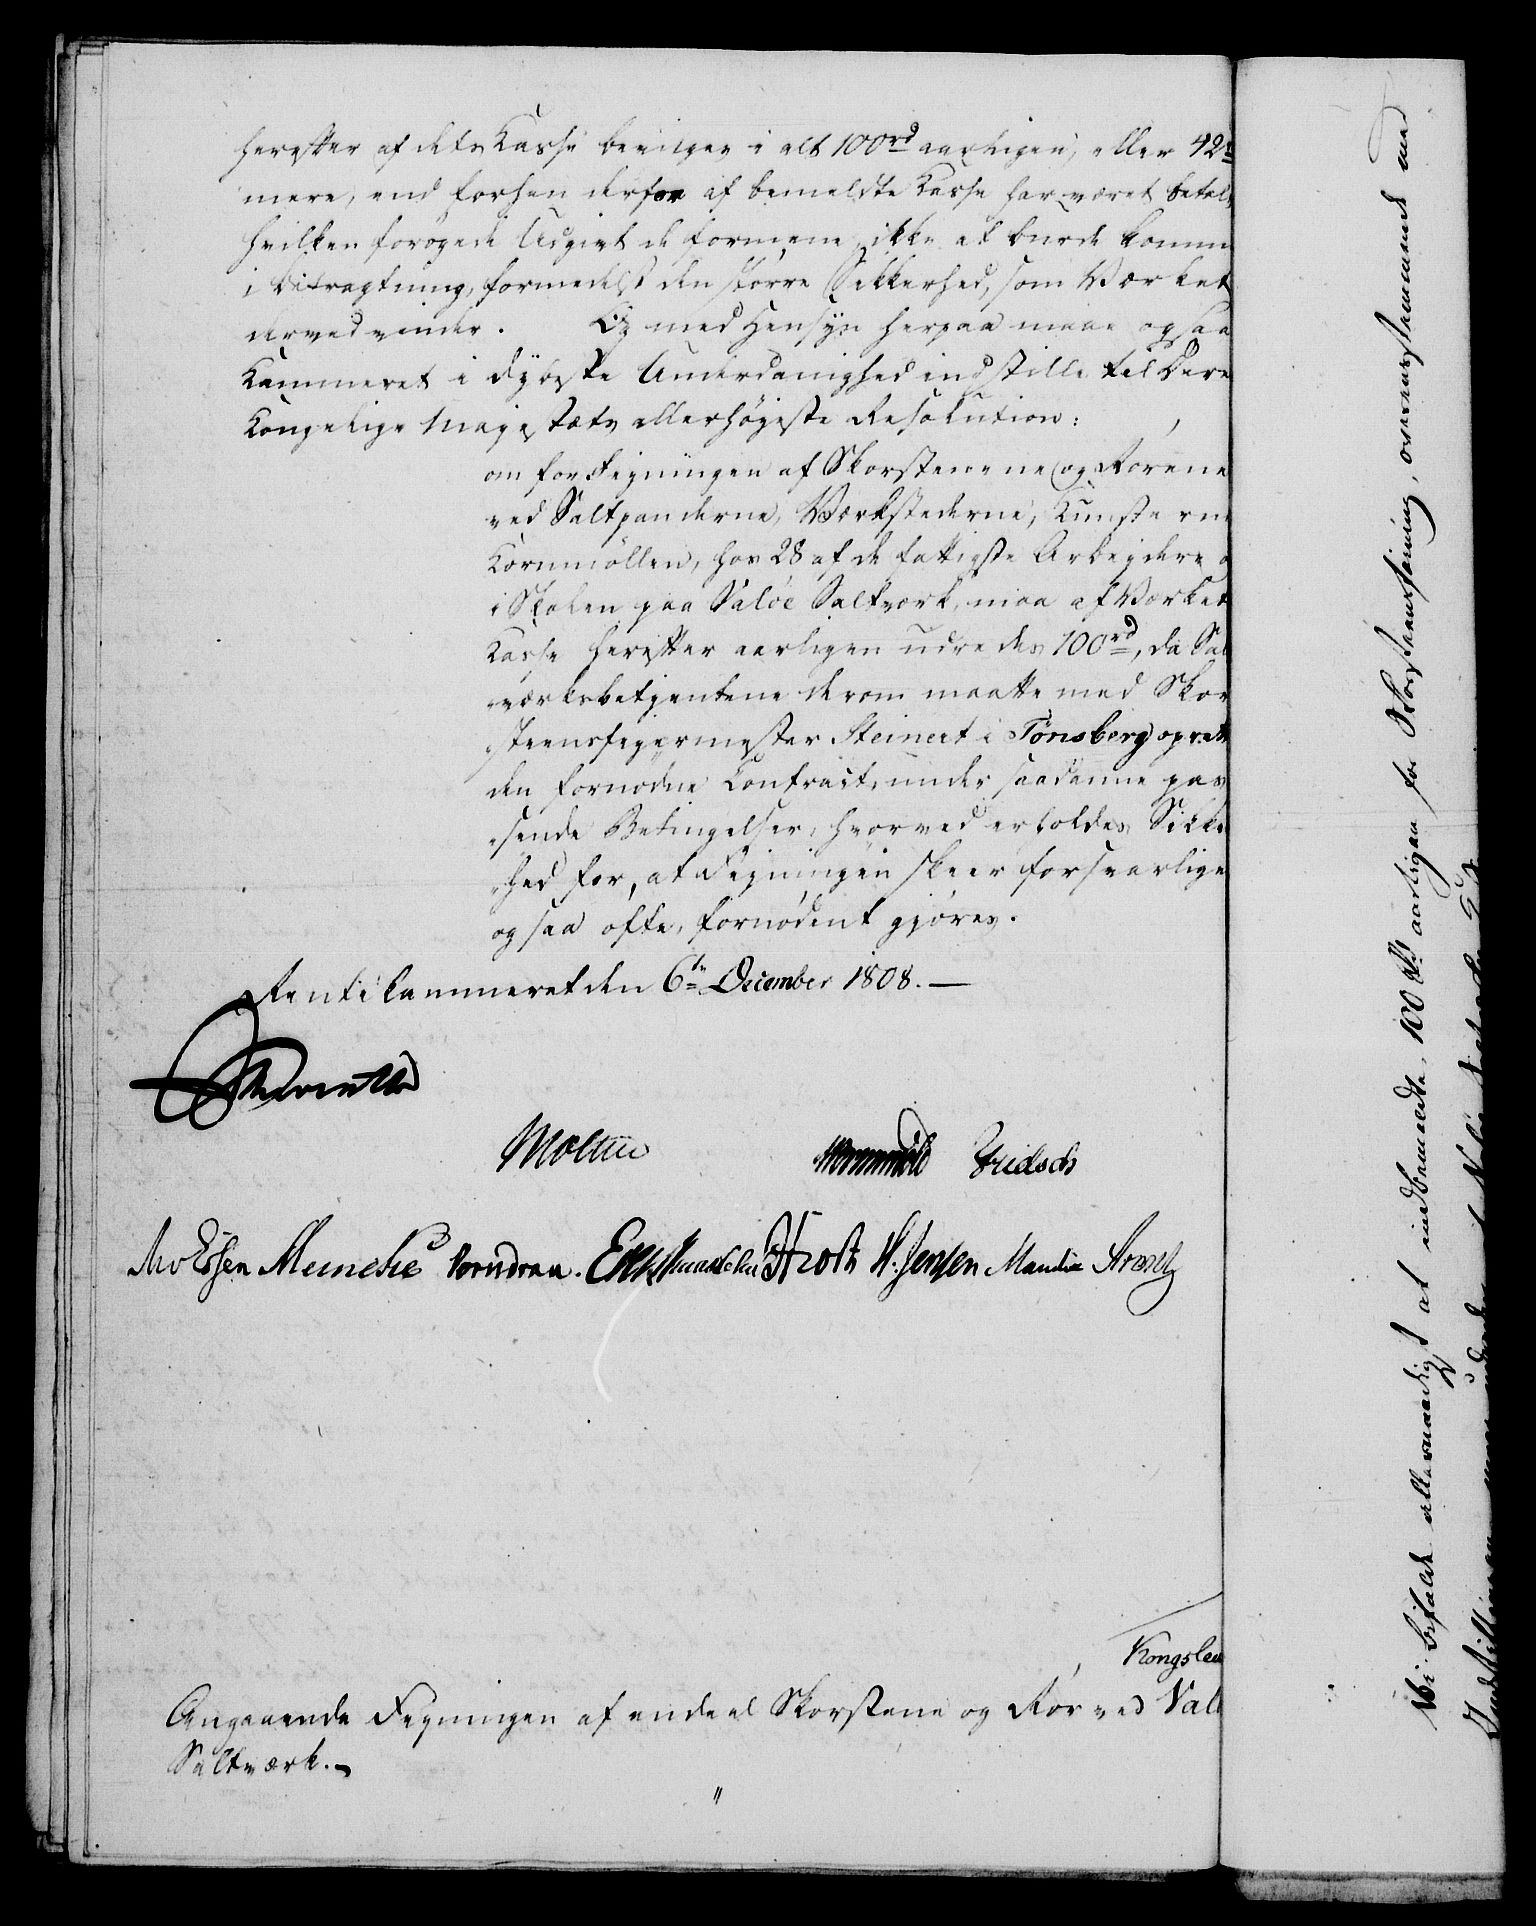 herefter af dets Kasse bevilges i alt 100 rd aarligen, eller 42 rd
mere, end forhen derfor af bemeldte Kasse har været betal
hvilken forøgede Udgivt de formene ikke at burde komm
i Betragtning, formedelst den større Sikkerhed, som Værket
derved vinder. Og med Hensyn herpaa maae ogsaa
Kammeret i dybeste Underdanighed indstille til Dere
Kongelige Majestæts allerhøjeste Resolution:
om for Fejningen af Skorstenene og Rørene
ved Saltpanderne, Værkstederne, Kunsterne
Kornmøllen, hos 28 af de fattigste Arbejdere o
i Skolen paa Valöe Saltværk, maa af Værket
Kasse herefter aarligen udredes 100 rd, da Sal
værksbetjentene derom maatte med Skor
steensfejermester Steinert i Tönsberg oprett
den fornødne Contract, under saadanne pas
sende Betingelser, hvorved erholdes Sikker
hed for, at Fejningen skeer forsvarlige
og saa ofte, fornødent gjøres.
Rentekammeret den 6te December 1808. —
Reventlow
Moltke Wormskiold Fridsch
Meinche Vorndran. H. Jensen Manthei Arentz
Kongslew
Angaaende Fejningen af endeel Skorstene og Rør ved Vall
Saltværk. —
"
Vi bifalde allernaadigst at indbemeldte 100 Rd aarligen for Skorsteensfeining, overeensstemmende med
Indstillingen maae udredes